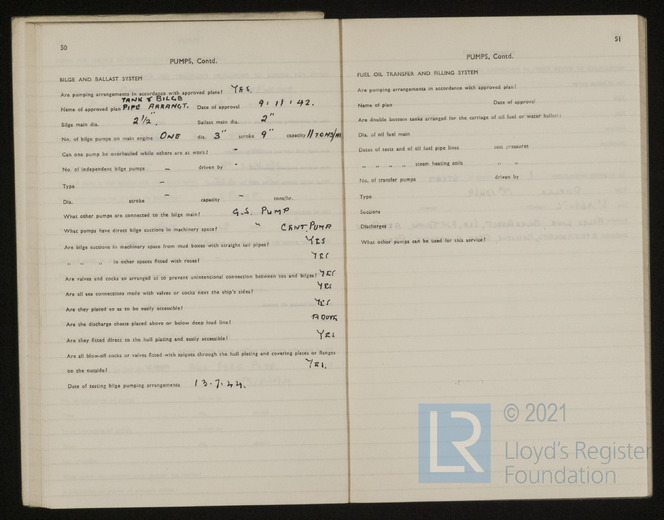 50
PUMPS, Contd.
BILGE AND BALLAST SYSTEM
Are pumping arrangements in accordance with approved plans? YES.
TANK & BILGE
Name of approved plan PIPE ARRANGT. Date of approval 9.11.42.
Bilge main dia. 2½" Ballast main dia. 2"
No. of bilge pumps on main engine ONE dia. 3" stroke 9" capacity
Can one pump be overhauled while others are at work? -
No. of independent bilge pumps - driven by -
Type -
Dia. stroke - capacity - tons/hr.
What other pumps are connected to the bilge main? G.S. PUMP
What pumps have direct bilge suctions in machinery space? " CENT. PUMP
Are bilge suctions in machinery space from mud boxes with straight tail pipes? YES
" " " in other spaces fitted with roses? YES
Are valves and cocks so arranged as to prevent unintentional connection between sea and bilges? YES
Are all sea connections made with valves or cocks next the ship's sides? YES
Are they placed so as to be easily accessible? YES
Are the discharge chests placed above or below deep load line? ABOVE
Are they fitted direct to the hull plating and easily accessible? YES
Are all blow-off cocks or valves fitted with spigots through the hull plating and covering plates or flanges
on the outside? YES.
Date of testing bilge pumping arrangements 13.7.44.
51
PUMPS, Contd.
FUEL OIL TRANSFER AND FILLING SYSTEM
Are pumping arrangements in accordance with approved plan?
Name of plan Date of approval
Are double bottom tanks arranged for the carriage of oil fuel or water ballast?
Dia. of oil fuel main
Dates of tests and of oil fuel pipe lines test pressures
" " " " steam heating coils " "
No. of transfer pumps driven by
Type
Suctions
Discharges
What other pumps can be used for this service?
LR
© 2021
Lloyd's Register
Foundation